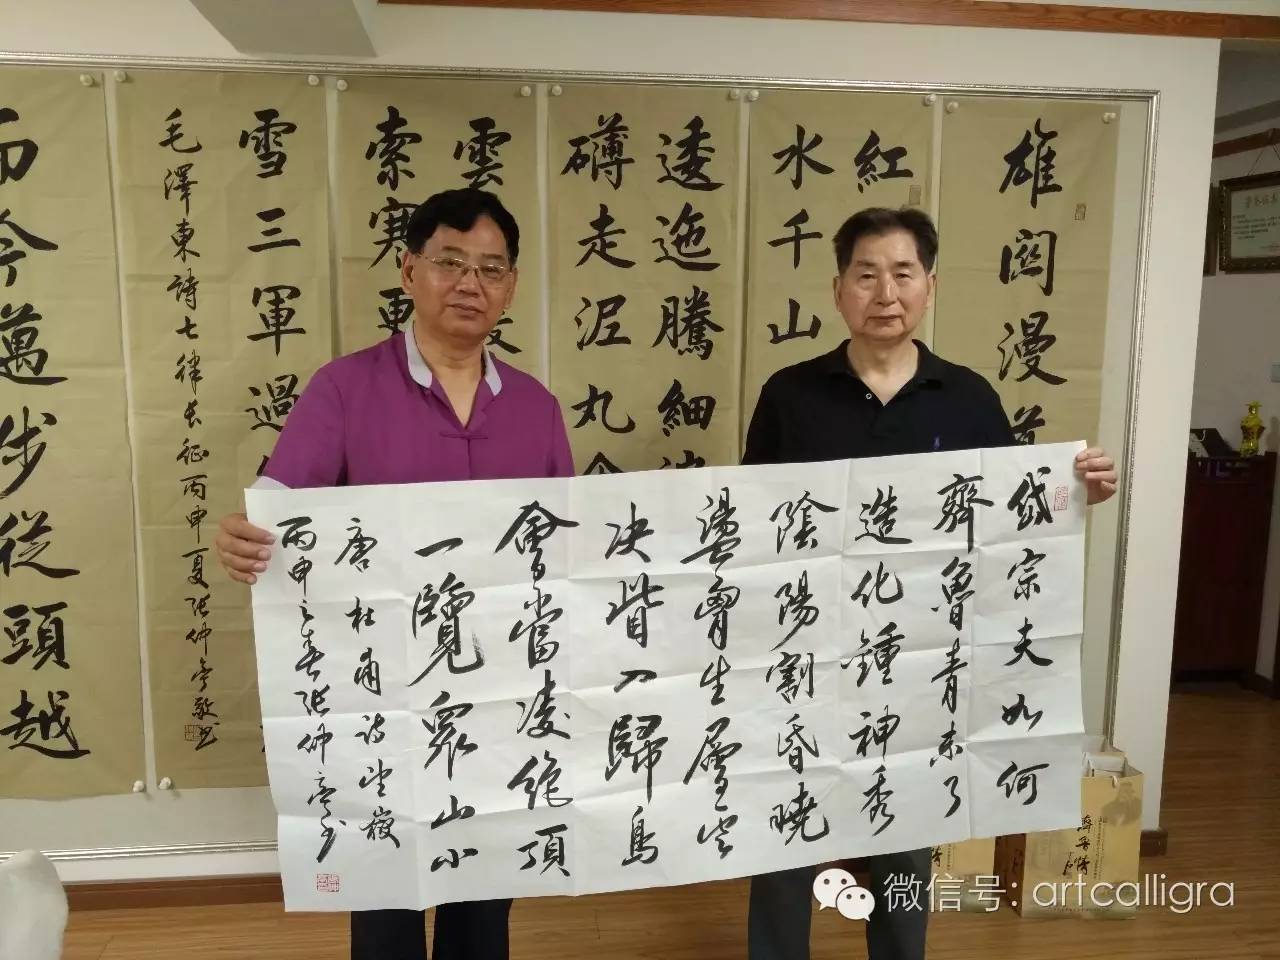 岱宗夫如何
齊魯青未了
造化鍾神秀
陰陽割昏曉
盪胷生層雲
决眥入歸鳥
會當凌絶頂
一覽眾山小
唐杜甫詩望嶽
丙申之春張仲亭書
雄關漫道
紅
水千山
逶迤騰細浪
礴走泥丸金
雲
索寒更
雪三軍過後
毛澤東詩七律長征丙申夏張仲亭敬書
而今邁步從頭越
微信号: artcalligra